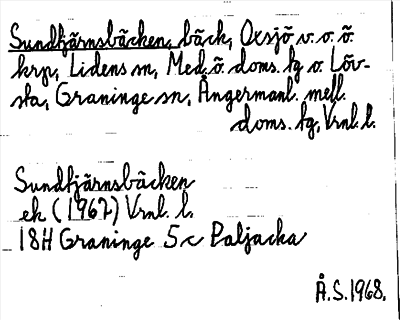 Sundtjärnsbäcken, bäck, Oxsjö v. o. ö.
krp, Lidens sn, Med. ö. doms. tg o. Löv-
sta, Graninge sn, Ångermanl. mell.
doms. tg, Vrnl. l.
Sundtjärnsbäcken
ek (1967) Vrnl. l.
18H Graninge 5c Paljacka
Å.S. 1968.